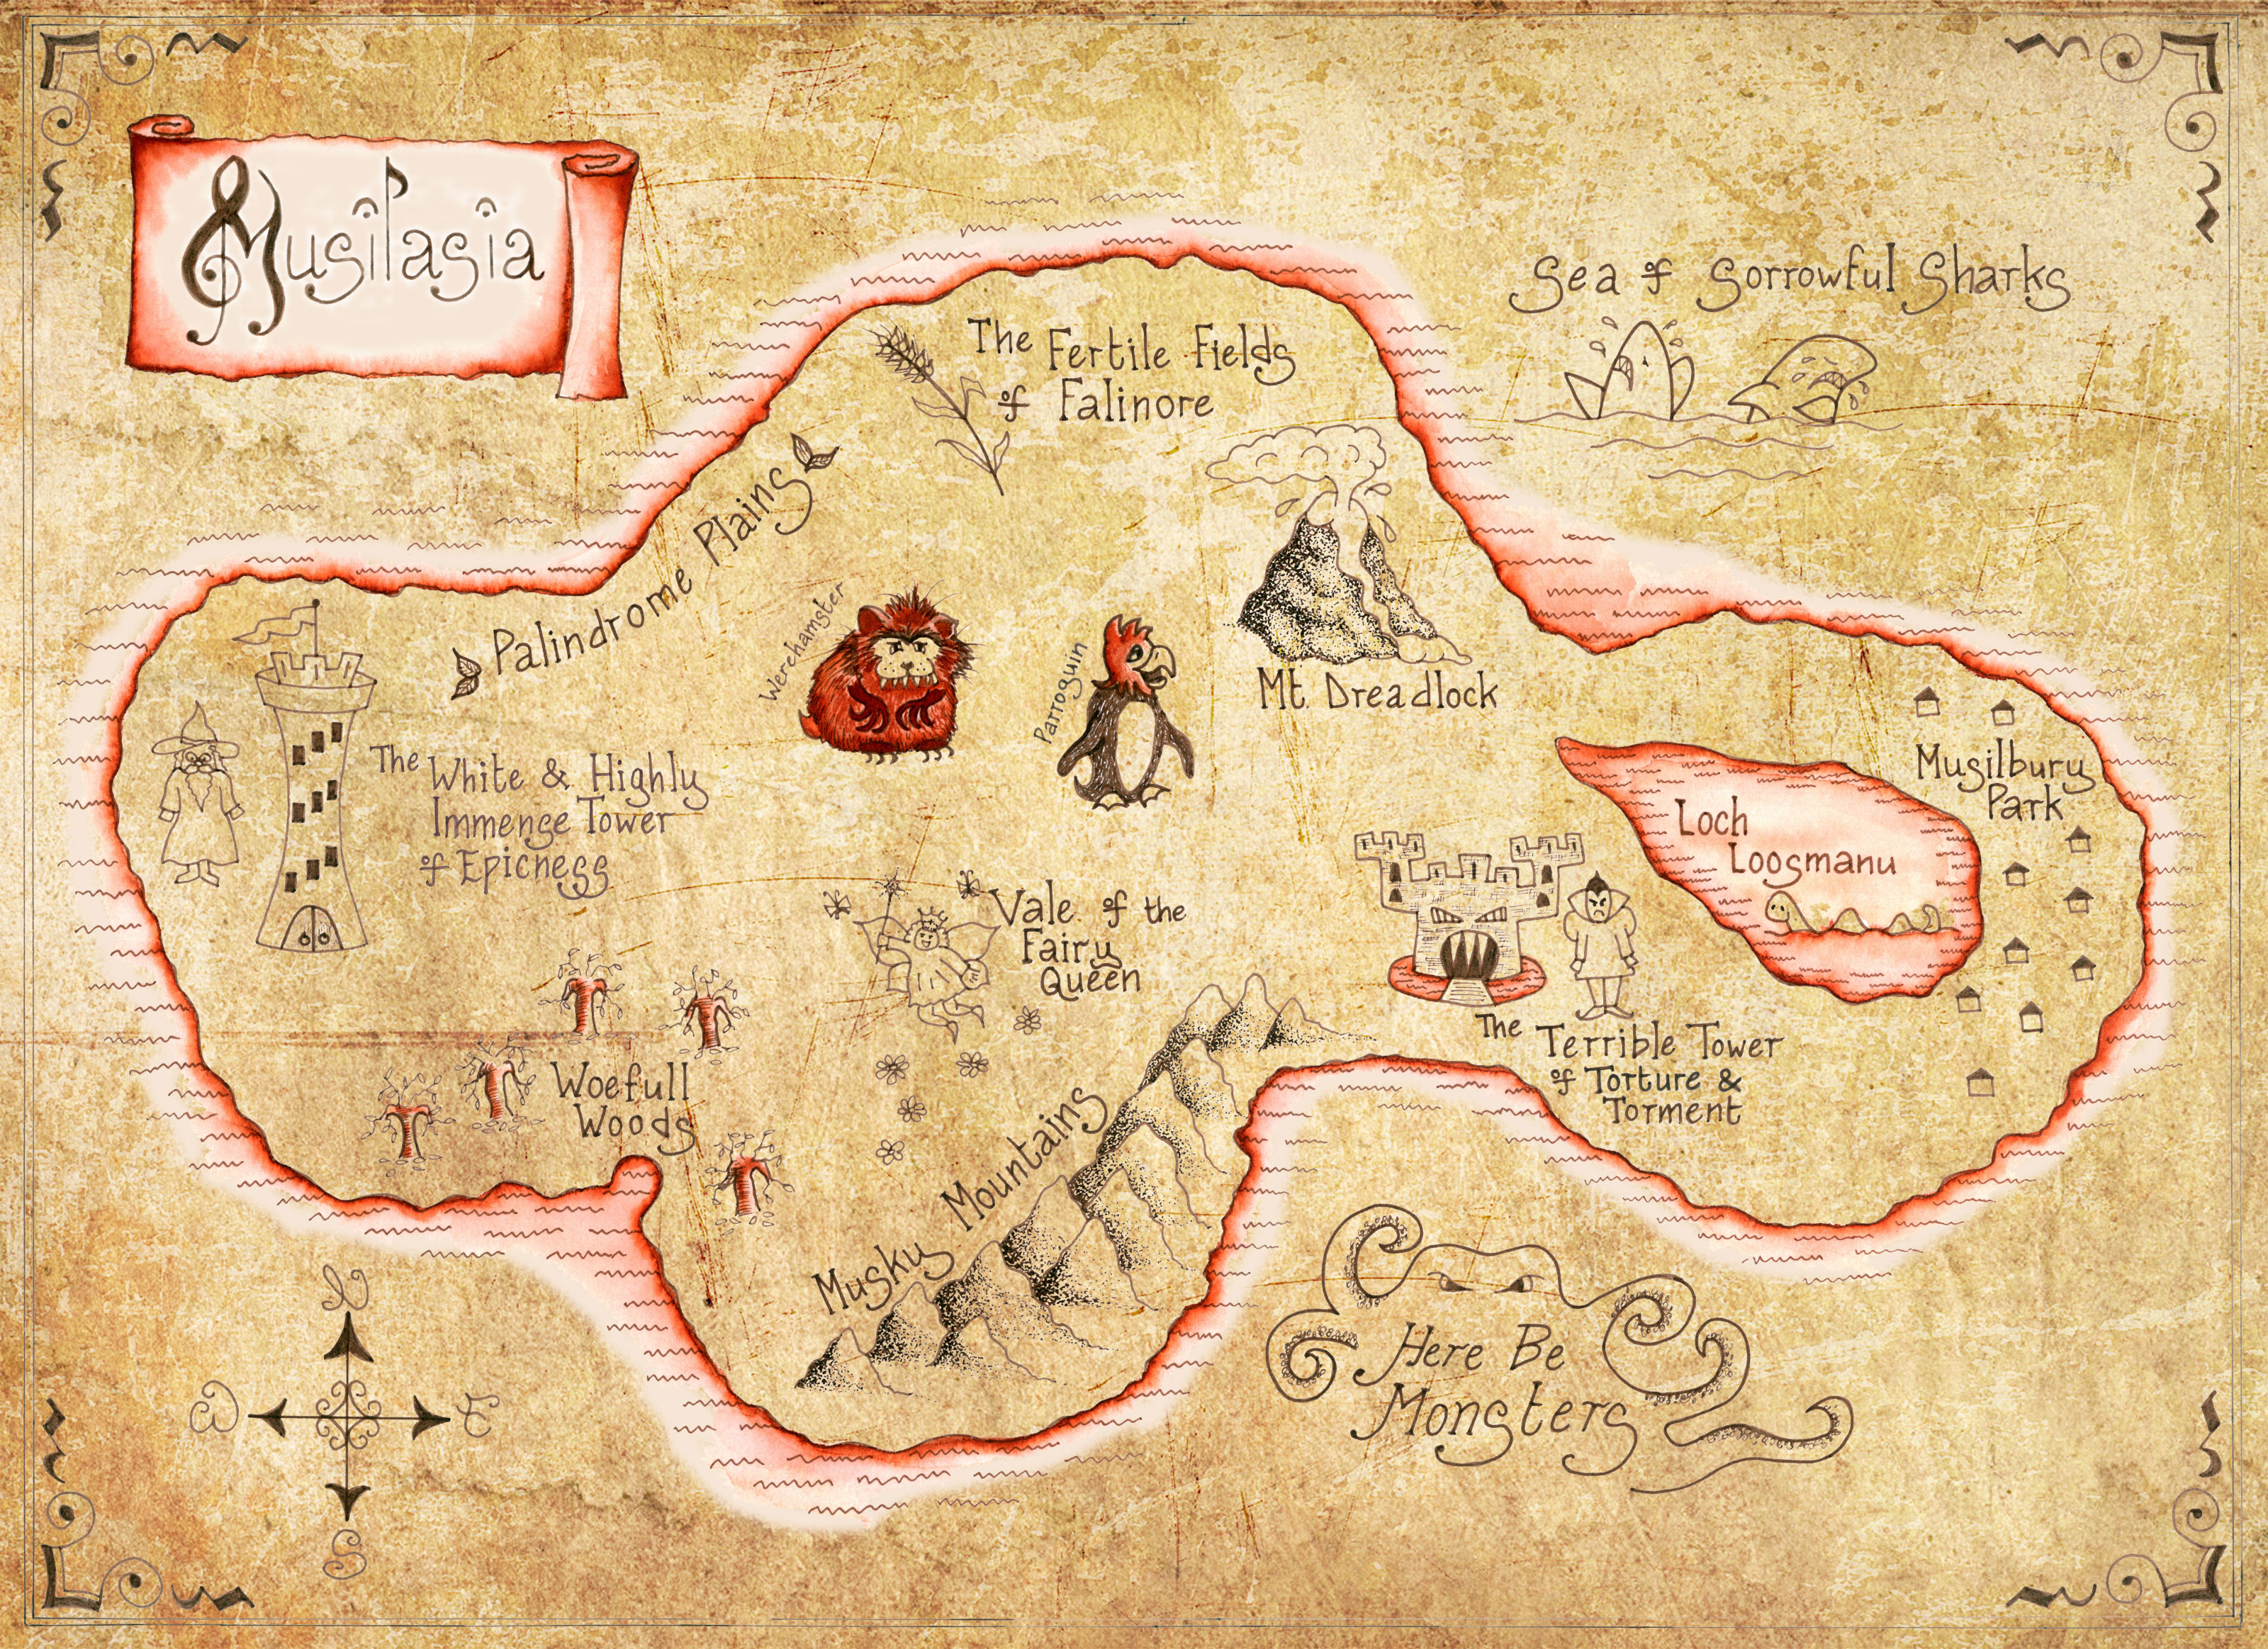 Musilasia
Sea of Sorrowful Sharks
The Fertile Fields
of Falinore
Palindrome Plains
Werehamster
Parroquin
Mt. Dreadlock
The White & Highly
Immense Tower
of Epicness
Musilbury
Park
Loch
Loosmanu
Vale of the
Fairy
Queen
The Terrible Tower
of Torture &
Torment
Woefull
Woods
Musky Mountains
Here Be
Monsters
N
W E
S